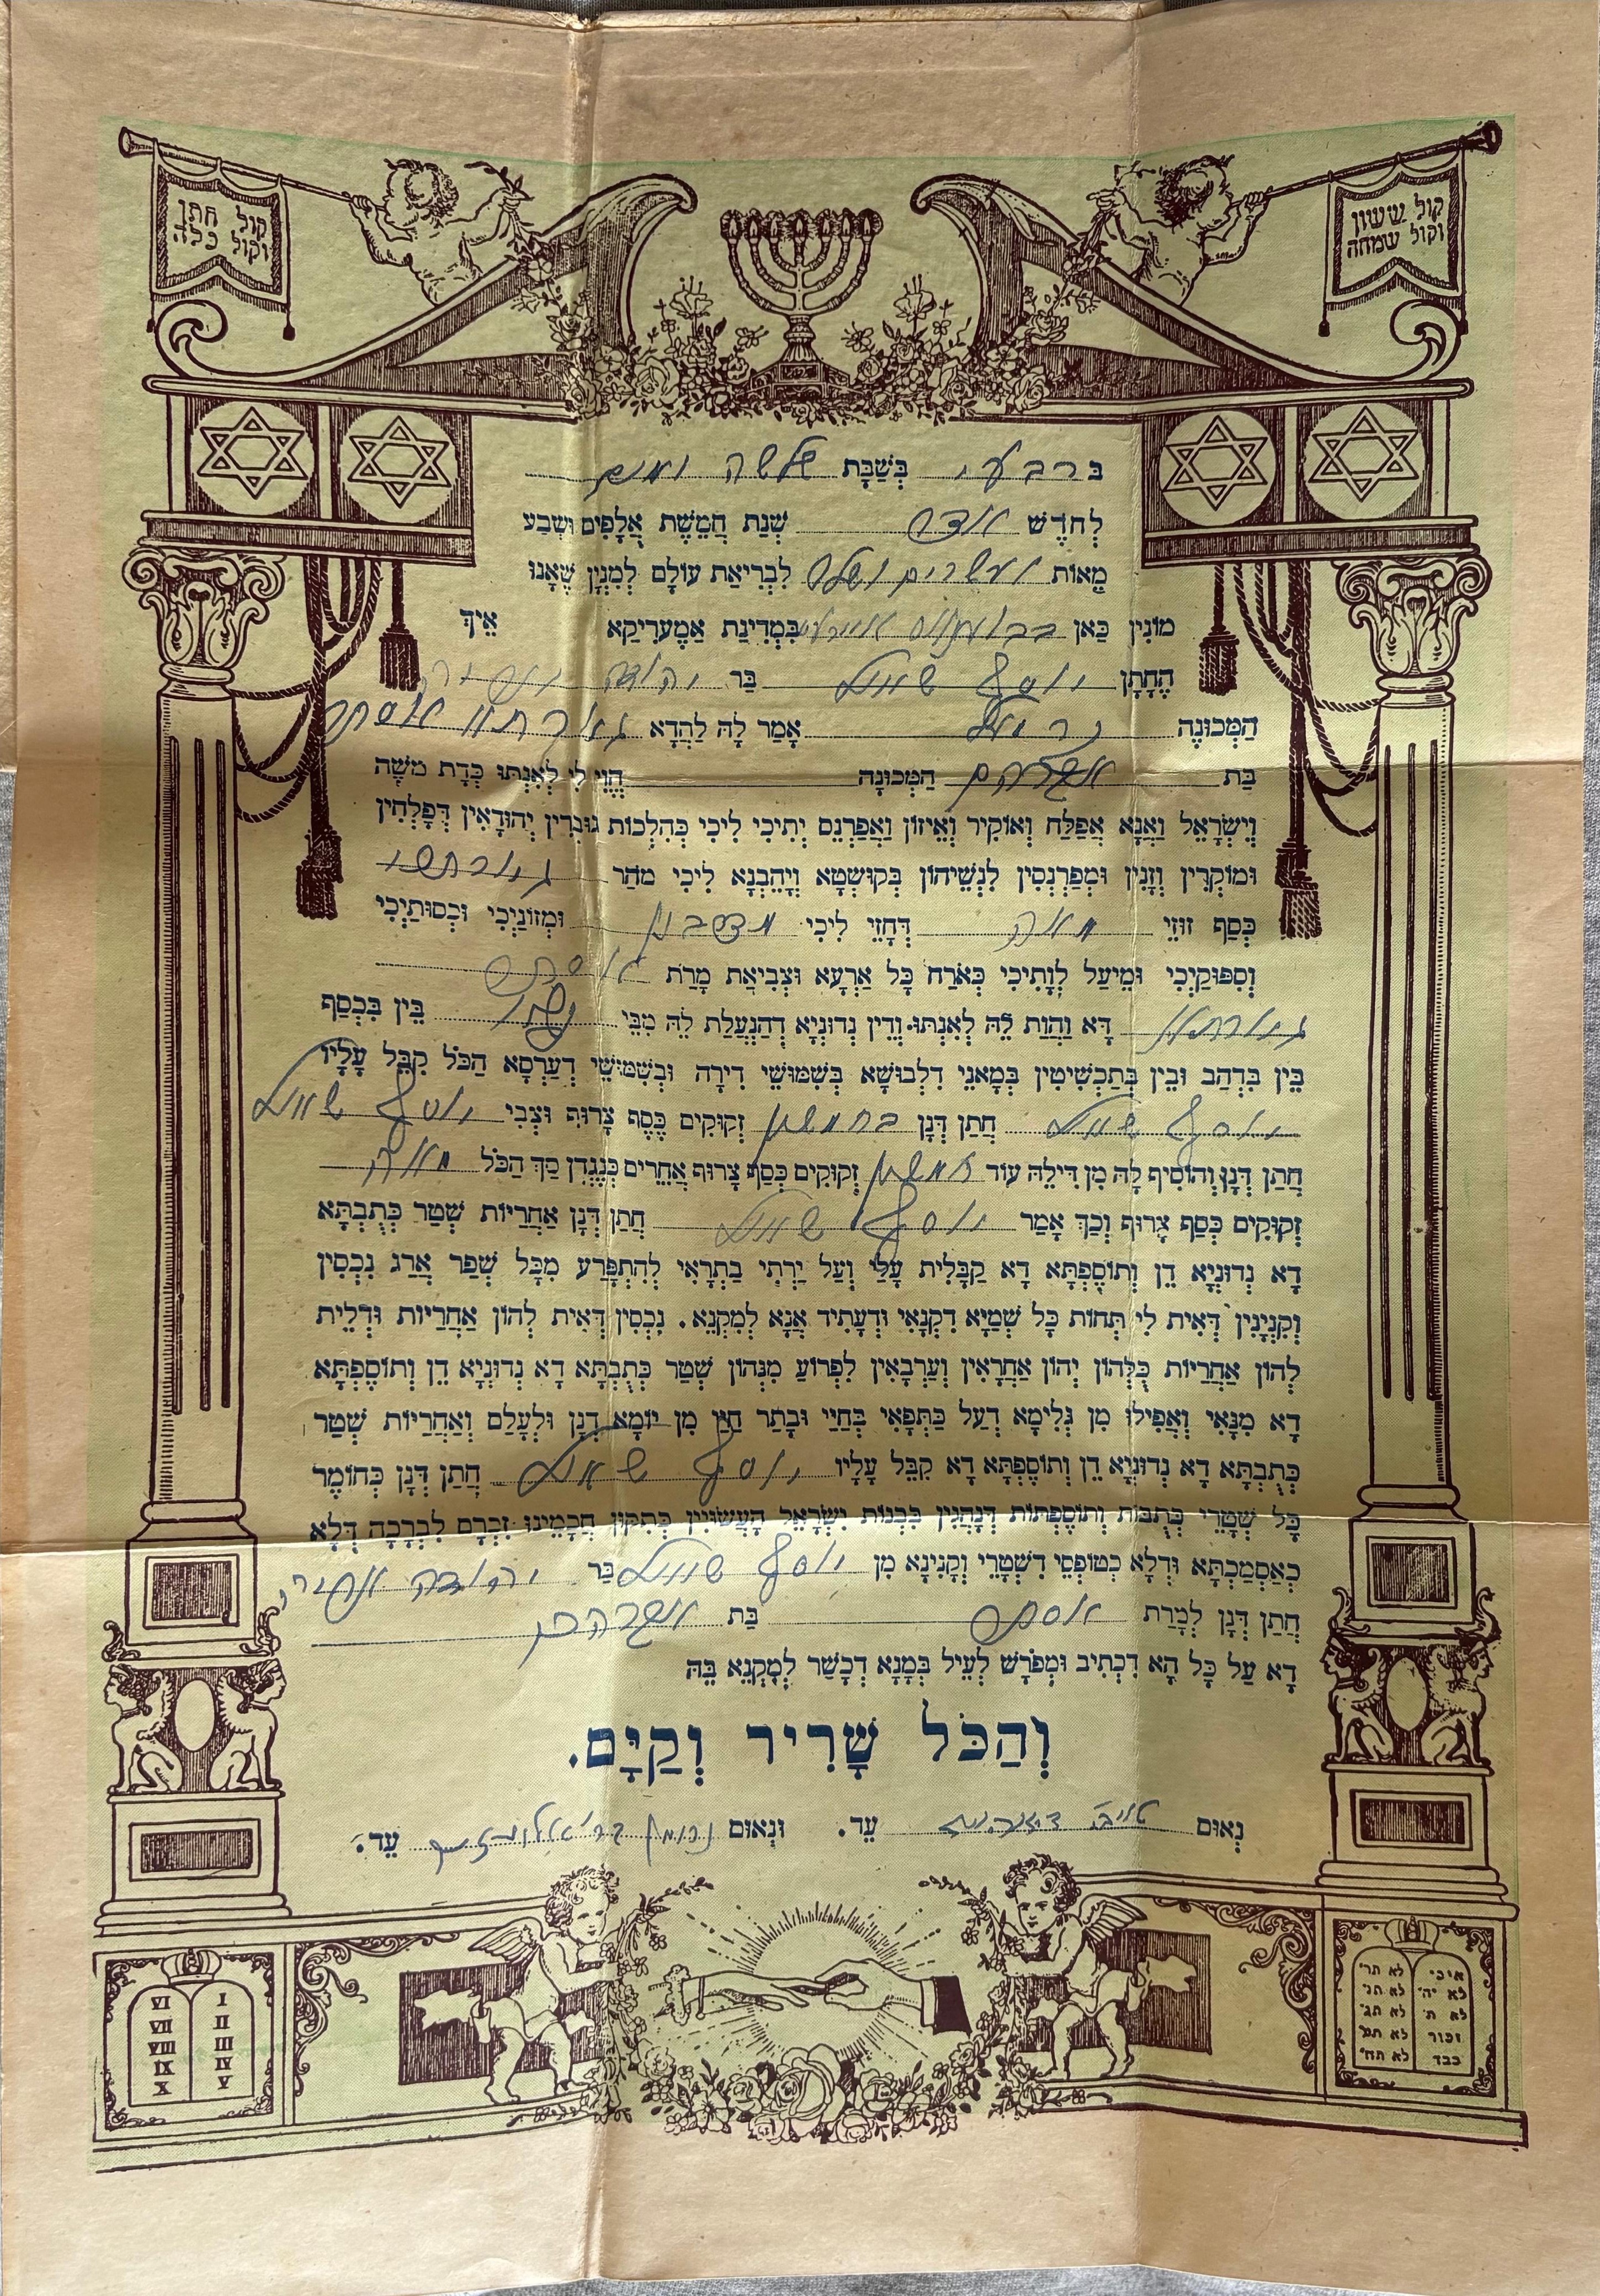 קול ששון
וקול שמחה
קול חתן
וקול כלה
בּ רביעי בְּשַׁבָּת שלשה
לְחֹדֶשׁ אדר שְׁנַת חֲמֵשֶׁת אֲלָפִים וּשְׁבַע
מֵאוֹת ועשרים לִבְרִיאַת עוֹלָם לְמִנְיָן שֶׁאָנוּ
מוֹנִין כַּאן בבוענוס איירעס בִּמְדִינַת אַמֶערִיקַא אֵיךְ
הֶחָתָן יוסף בַּר יהודה
הַמְּכוּנֶה אָמַר לָהּ לַהֲדָא אסתר
בַּת אברהם הַמְּכוּנָה הֱוֵי לִי לְאִנְתּוּ כְּדָת משֶׁה
וְיִשְׂרָאֵל וַאֲנָא אֶפְלַח וְאוֹקִיר וְאֵיזוֹן וַאֲפַרְנֵס יְתִיכִי לִיכִי כְּהִלְכוֹת גּוּבְרִין יְהוּדָאִין דְּפָלְחִין
וּמוֹקְרִין וְזָנִין וּמְפַרְנְסִין לִנְשֵׁיהוֹן בְּקוּשְׁטָא וְיָהֵבְנָא לִיכִי מֹהַר
כְּסַף זוּזֵי מאה דְּחָזֵי לִיכִי וּמְזוֹנַיְכִי וּכְסוּתַיְכִי
וְסִפּוּקַיְכִי וּמֵיעַל לְוָתֵיכִי כְּאֹרַח כָּל אַרְעָא וּצְבִיאַת מָרַת אסתר
דָּא וַהֲוַת לֵהּ לְאִנְתּוּ וְדֵין נְדוּנְיָא דְהַנְעֲלַת לֵהּ מִבֵּי בֵּין בִּכְסַף
בֵּין בִּדְהַב וּבֵין בְּתַכְשִׁיטִין בְּמָאנֵי דִלְבוּשָׁא בְּשִׁמּוּשֵׁי דִירָה וּבְשִׁמּוּשֵׁי דְעַרְסָא הַכֹּל קִבֵּל עָלָיו
יוסף חֲתַן דְּנָן בחמשים זְקוּקִים כֶּסֶף צָרוּף וּצְבִי יוסף
חֲתַן דְּנָן וְהוֹסִיף לָהּ מִן דִּילֵהּ עוֹד חמשים זְקוּקִים כֶּסֶף צָרוּף אֲחֵרִים כְּנֶגְדָּן סַךְ הַכֹּל מאה
זְקוּקִים כֶּסֶף צָרוּף וְכַךְ אָמַר יוסף חֲתַן דְּנָן אַחֲרָיוּת שְׁטַר כְּתֻבְתָּא
דָא נְדוּנְיָא דֵן וְתוֹסֶפְתָּא דָא קַבָּלִית עָלַי וְעַל יַרְתַי בַּתְרָאִי לְהִתְפָּרַע מִכָּל שְׁפַר אֲרַג נִכְסִין
וְקִנְיָנִין דְּאִית לִי תְּחוֹת כָּל שְׁמַיָּא דִקְנָאִי וּדְעָתִיד אֲנָא לְמִקְנֵא. נִכְסִין דְּאִית לְהוֹן אַחֲרָיוּת וּדְלֵית
לְהוֹן אַחֲרָיוּת כֻּלְּהוֹן יְהוֹן אַחֲרָאִין וְעַרְבָאִין לִפְרוֹעַ מִנְּהוֹן שְׁטַר כְּתֻבְתָּא דָא נְדוּנְיָא דֵן וְתוֹסֶפְתָּא
דָא מִנָּאִי וַאֲפִילוּ מִן גְּלִימָא דְעַל כַּתְפָאִי בְּחַיַּי וּבָתַר חַיַּי מִן יוֹמָא דְנָן וּלְעָלַם וְאַחֲרָיוּת שְׁטַר
כְּתֻבְתָּא דָא נְדוּנְיָא דֵן וְתוֹסֶפְתָּא דָא קִבֵּל עָלָיו יוסף חֲתַן דְּנָן כְּחוֹמֶר
כָּל שְׁטָרֵי כְּתֻבּוֹת וְתוֹסֶפְתּוֹת דְּנָהֲגִין בִּבְנוֹת יִשְׂרָאֵל הָעֲשׂוּיִין כְּתִקּוּן חֲכָמֵינוּ זִכְרָם לִבְרָכָה דְּלָא
כְּאַסְמַכְתָּא וּדְלָא כְּטוֹפְסֵי דִשְׁטָרֵי וְקָנִינָא מִן יוסף בַּר יהודה
חֲתַן דְּנָן לְמָרַת אסתר בַּת אברהם
דָא עַל כָּל הָא דִכְתִיב וּמְפֹרָשׁ לְעֵיל בְּמָנָא דְכָשַׁר לְמִקְנֵא בֵּהּ
וְהַכֹּל שָׁרִיר וְקַיָּם.
נְאוּם עֵד. וּנְאוּם עֵד.
I
II
III
IV
V
VI
VII
VIII
IX
X
אנכי
לא יה'
לא ת'
זכור
כבד
לא תר'
לא תנ'
לא תג'
לא תע'
לא תח'